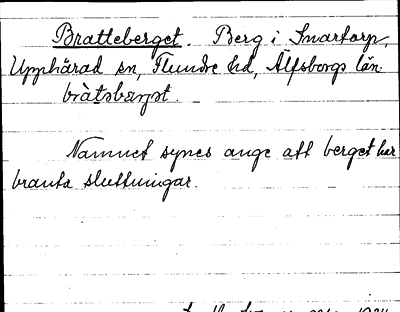 Bratteberget. Berg i Smartorp,
Upphärad sn, Flundre hd, Älfsborgs län.
bràtsbærjət.
Namnet synes ange att berget har
branta sluttningar.